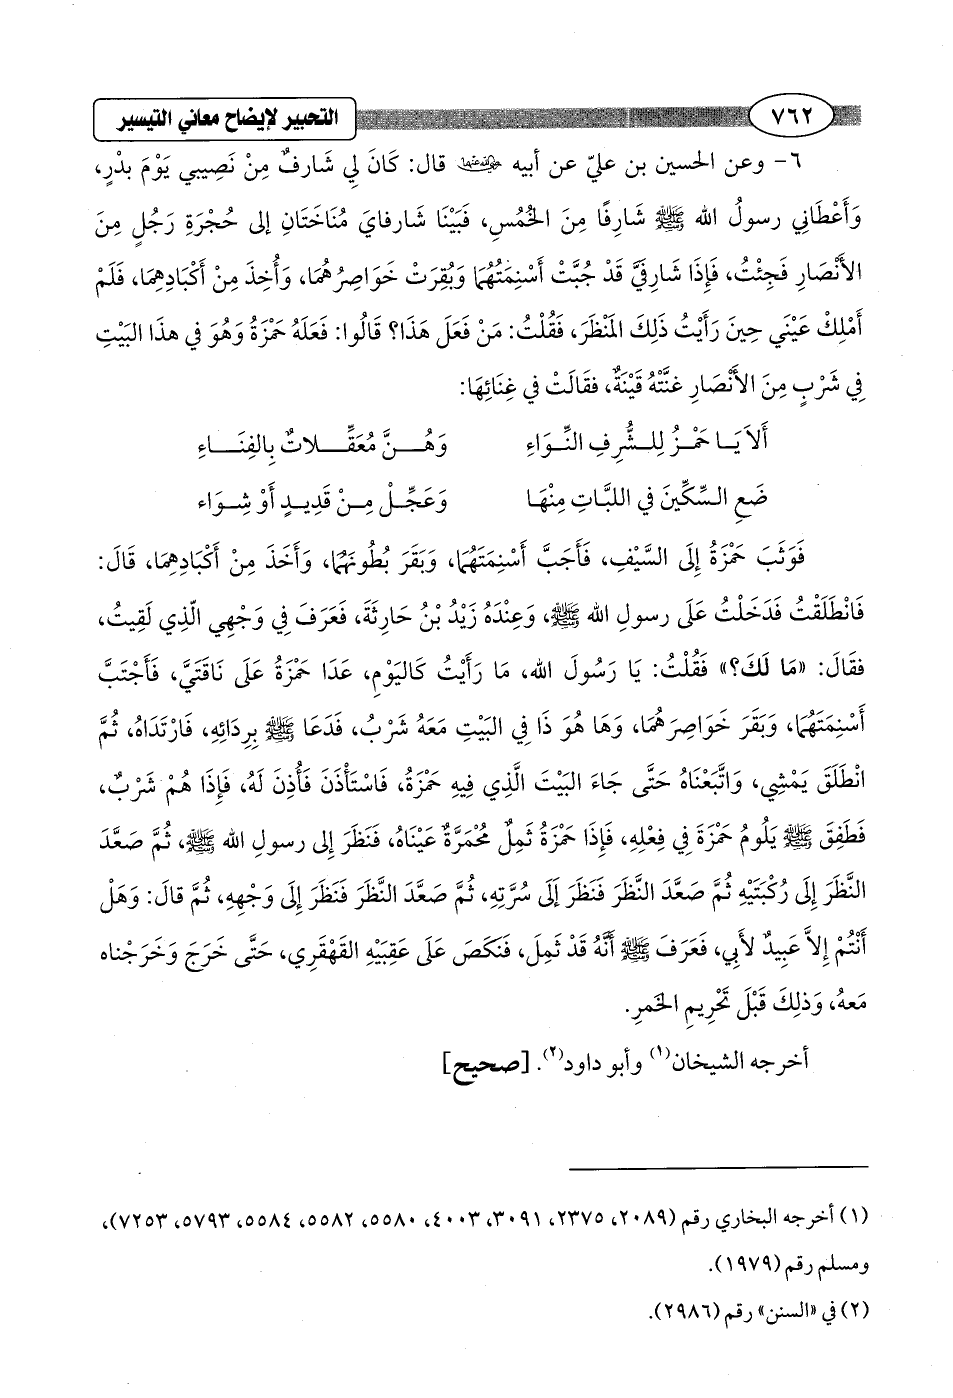 ٧٦٢
التحبير لإيضاح معاني التيسير
٦- وعن الحسين بن عليّ عن أبيه رضي الله عنهما قال: كَانَ لِي شَارِفٌ مِنْ نَصِيبِي يَوْمَ بدْرٍ،
وَأَعْطَانِي رسولُ الله ﷺ شَارِفًا مِنَ الخُمُسِ، فَبَيْنَا شَارفايَ مُنَاخَتَانِ إلى حُجْرَةِ رَجُلٍ مِنَ
الأَنْصَارِ فَجِئْتُ، فَإِذَا شَارِفَيَّ قَدْ جُبَّتْ أَسْنِمَتُهُمَا وَبُقِرَتْ خَوَاصِرُهُمَا، وَأُخِذَ مِنْ أَكْبَادِهِمَا، فَلَمْ
أَمْلِكْ عَيْنَي حِينَ رَأَيْتُ ذَلِكَ المَنْظَرَ، فَقُلْتُ: مَنْ فَعَلَ هَذَا؟ قَالُوا: فَعَلَهُ حَمْزَةُ وَهُوَ في هذَا البَيْتِ
فِي شَرْبٍ مِنَ الأَنْصَارِ غنَّتْهُ قَيْنَةٌ، فقَالَتْ في غِنَائِهَا:
أَلاَ يَا حَمْزُ لِلشُّرفِ النِّوَاءِ وَهُنَّ مُعَقَّلَاتٌ بِالفِنَاءِ
ضَعِ السِّكِّينَ في اللبَّاتِ مِنْهَا وَعَجِّلْ مِنْ قَدِيدٍ أَوْ شِوَاء
فَوَثَبَ حَمْزَةُ إِلَى السَّيْفِ، فَأَجَبَّ أَسْنِمَتَهُمَا، وَبَقَرَ بُطُونَهُمَا، وَأَخَذَ مِنْ أَكْبَادِهِمَا، قَالَ:
فَانْطَلَقْتُ فَدَخَلْتُ عَلَى رسولِ الله ﷺ، وَعِنْدَهُ زَيْدُ بْنُ حَارِثَةَ، فَعَرَفَ فِي وَجْهِي الّذِي لَقِيتُ،
فقَالَ: «مَا لَكَ؟» فَقُلْتُ: يَا رَسُولَ الله، مَا رَأَيْتُ كَاليَوْمِ، عَدَا حَمْزَةُ عَلَى نَاقَتَيَّ، فَأَجْتَبَّ
أَسْنِمَتَهُمَا، وَبَقَرَ خَوَاصِرَهُمَا، وَهَا هُوَ ذَا فِي البَيْتِ مَعَهُ شَرْبٌ، فَدَعَا ﷺ بِرِدَائِهِ، فَارْتَدَاهُ، ثُمَّ
انْطَلَقَ يَمْشِي، وَاتَّبَعْنَاهُ حَتَّى جَاءَ البَيْتَ الَّذِي فِيهِ حَمْزَةُ، فَاسْتَأْذَنَ فَأُذِنَ لَهُ، فَإِذَا هُمْ شَرْبٌ،
فَطَفِقَ ﷺ يَلُومُ حَمْزَةَ فِي فِعْلِهِ، فَإِذَا حَمْزَةُ ثَمِلٌ مُحْمَرَّةٌ عَيْنَاهُ، فَنَظَرَ إلى رسولِ الله ﷺ، ثُمَّ صَعَّدَ
النَّظَرَ إِلَى رُكْبَتَيْهِ ثُمَّ صَعَّدَ النَّظَرَ فَنَظَرَ إلَى سُرَّتِهِ، ثُمَّ صَعَّدَ النَّظَرَ فَنَظَرَ إِلَى وَجْهِهِ، ثُمَّ قالَ: وَهَلْ
أَنْتُمْ إلاَّ عَبِيدٌ لأَبِي، فَعَرَفَ ﷺ أَنَّهُ قَدْ ثَمِلَ، فَنَكَصَ عَلَى عَقِبَيْهِ القَهْقَرِي، حَتَّى خَرَجَ وَخَرَجْناه
مَعهُ، وَذلِكَ قَبْلَ تَحْرِيمِ الخَمرِ.
أخرجه الشيخان(١) وأبو داود(٢). [صحيح]
(١) أخرجه البخاري رقم (٢٠٨٩، ٢٣٧٥، ٣٠٩١، ٤٠٠٣، ٥٥٨٠، ٥٥٨٢، ٥٥٨٤، ٥٧٩٣، ٧٢٥٣)،
ومسلم رقم (١٩٧٩).
(٢) في «السنن» رقم (٢٩٨٦).